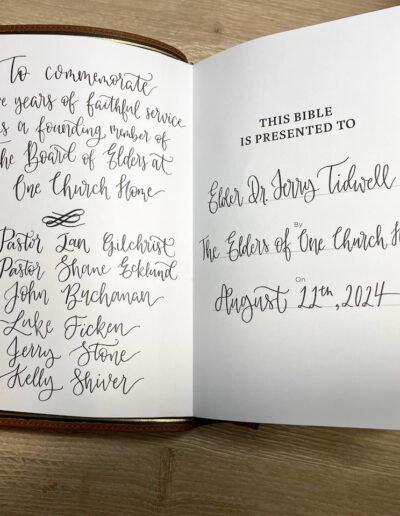 To commemorate
e years of faithful service
s a founding member of
The Board of Elders at
One Church Home
Pastor Ian Gilchrist
Pastor Shane Ecklund
John Buchanan
Luke Ficken
Jerry Stone
Kelly Shiver
THIS BIBLE
IS PRESENTED TO
Elder Dr. Jerry Tidwell
By
The Elders of One Church H
On
August 11th, 2024